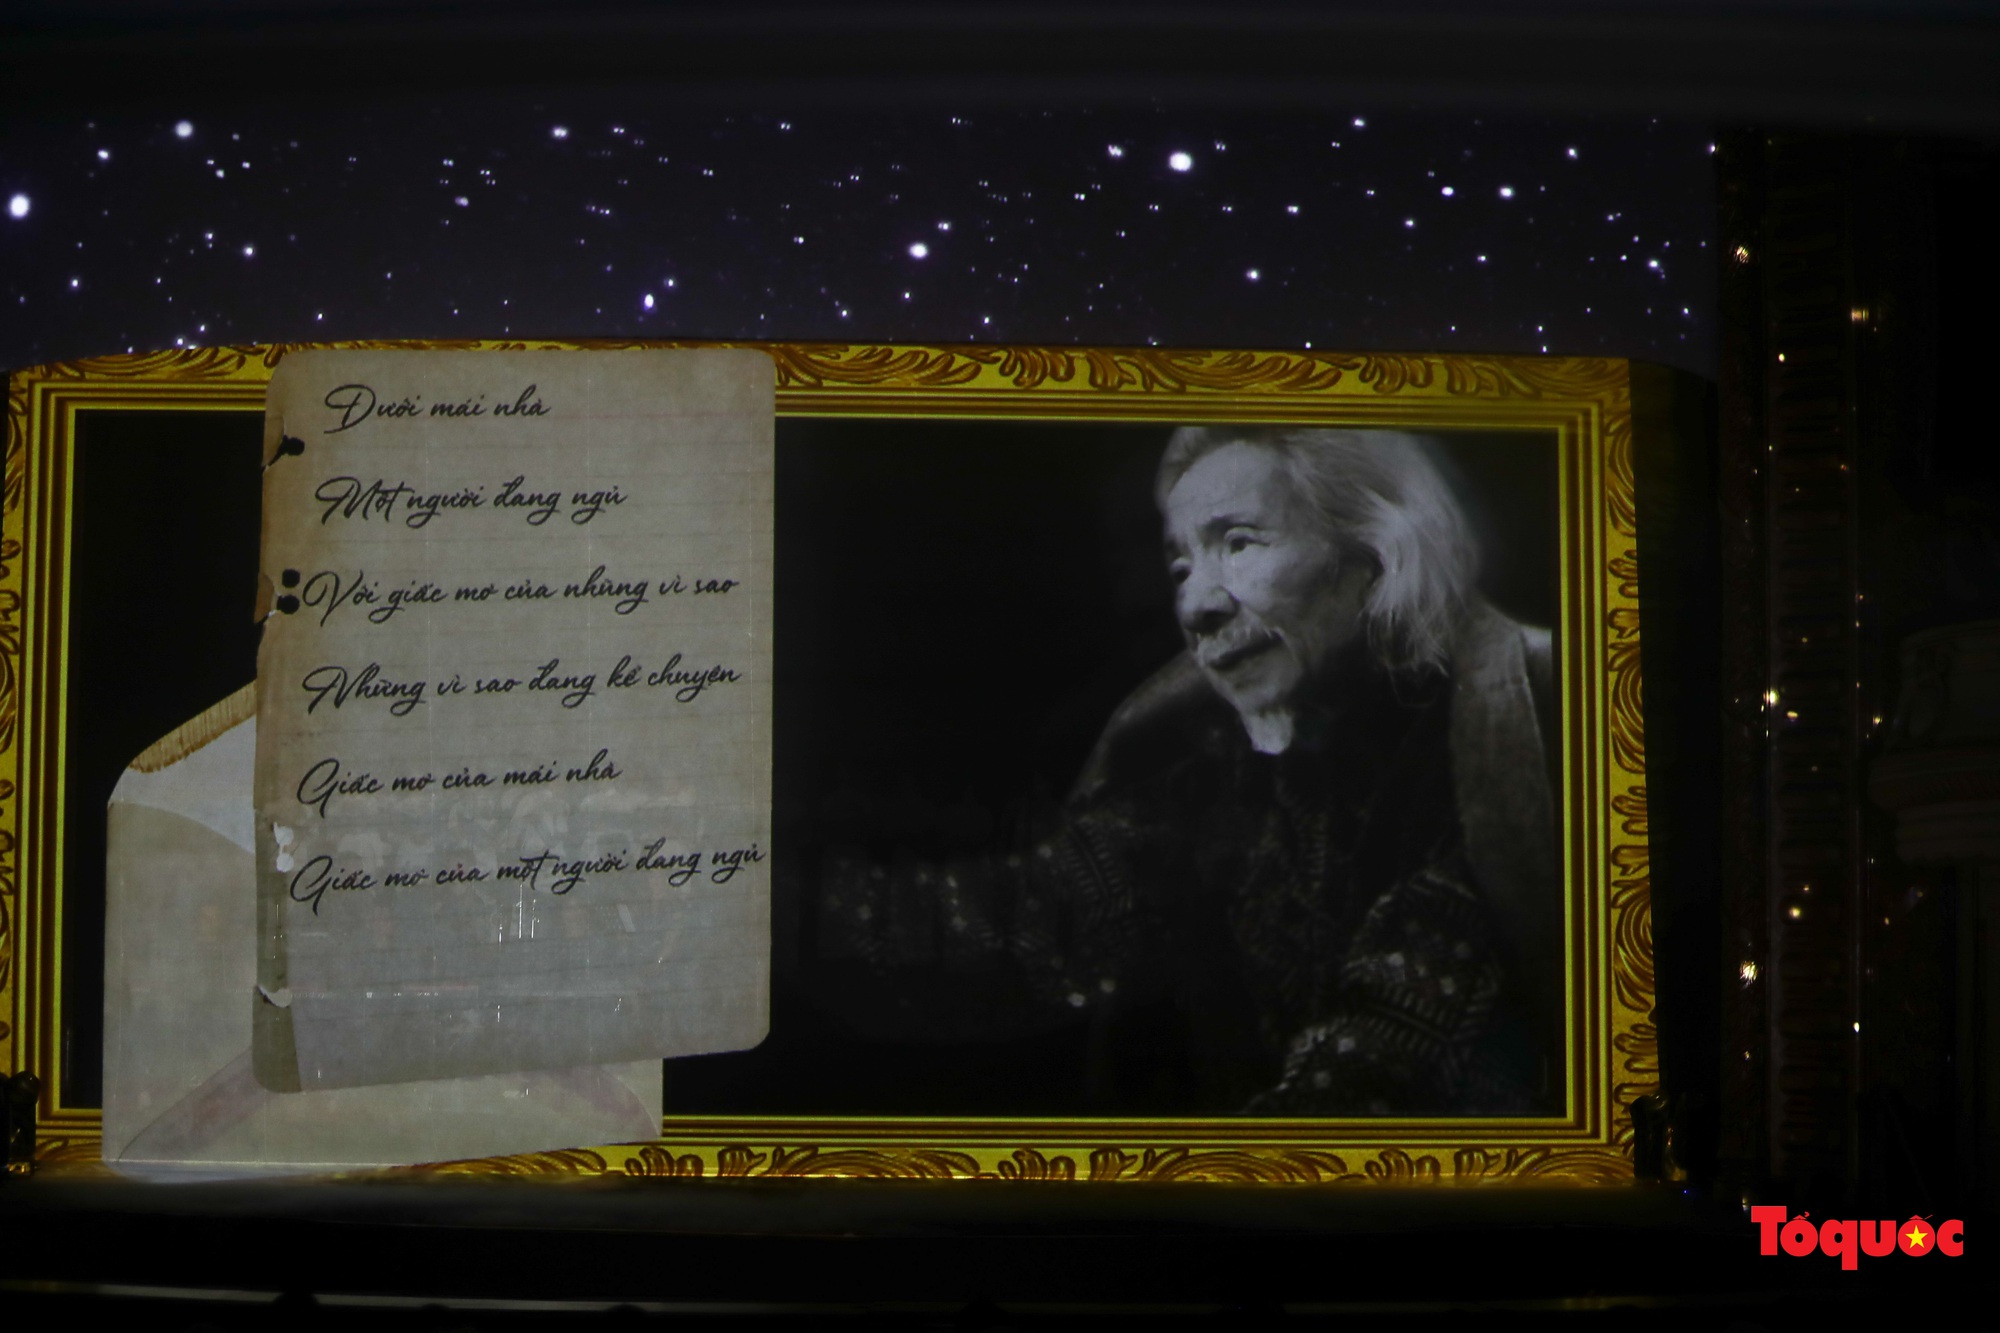 Dưới mái nhà
Một người đang ngủ
Với giấc mơ của những vì sao
Những vì sao đang kể chuyện
Giấc mơ của mái nhà
Giấc mơ của một người đang ngủ
Tổquốc